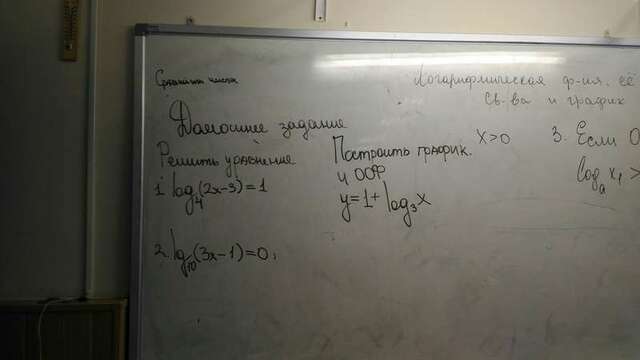 Сравнить числа
Логарифмическая ф-ия, её
св-ва и график
Домашнее задание
Решить уравнение
1. log₄(2x-3)=1
2. lg₁₀(3x-1)=0,
Построить график.
и ООФ
y=1+log₃x
x>0
3. Если 0
logₐ x₁ >